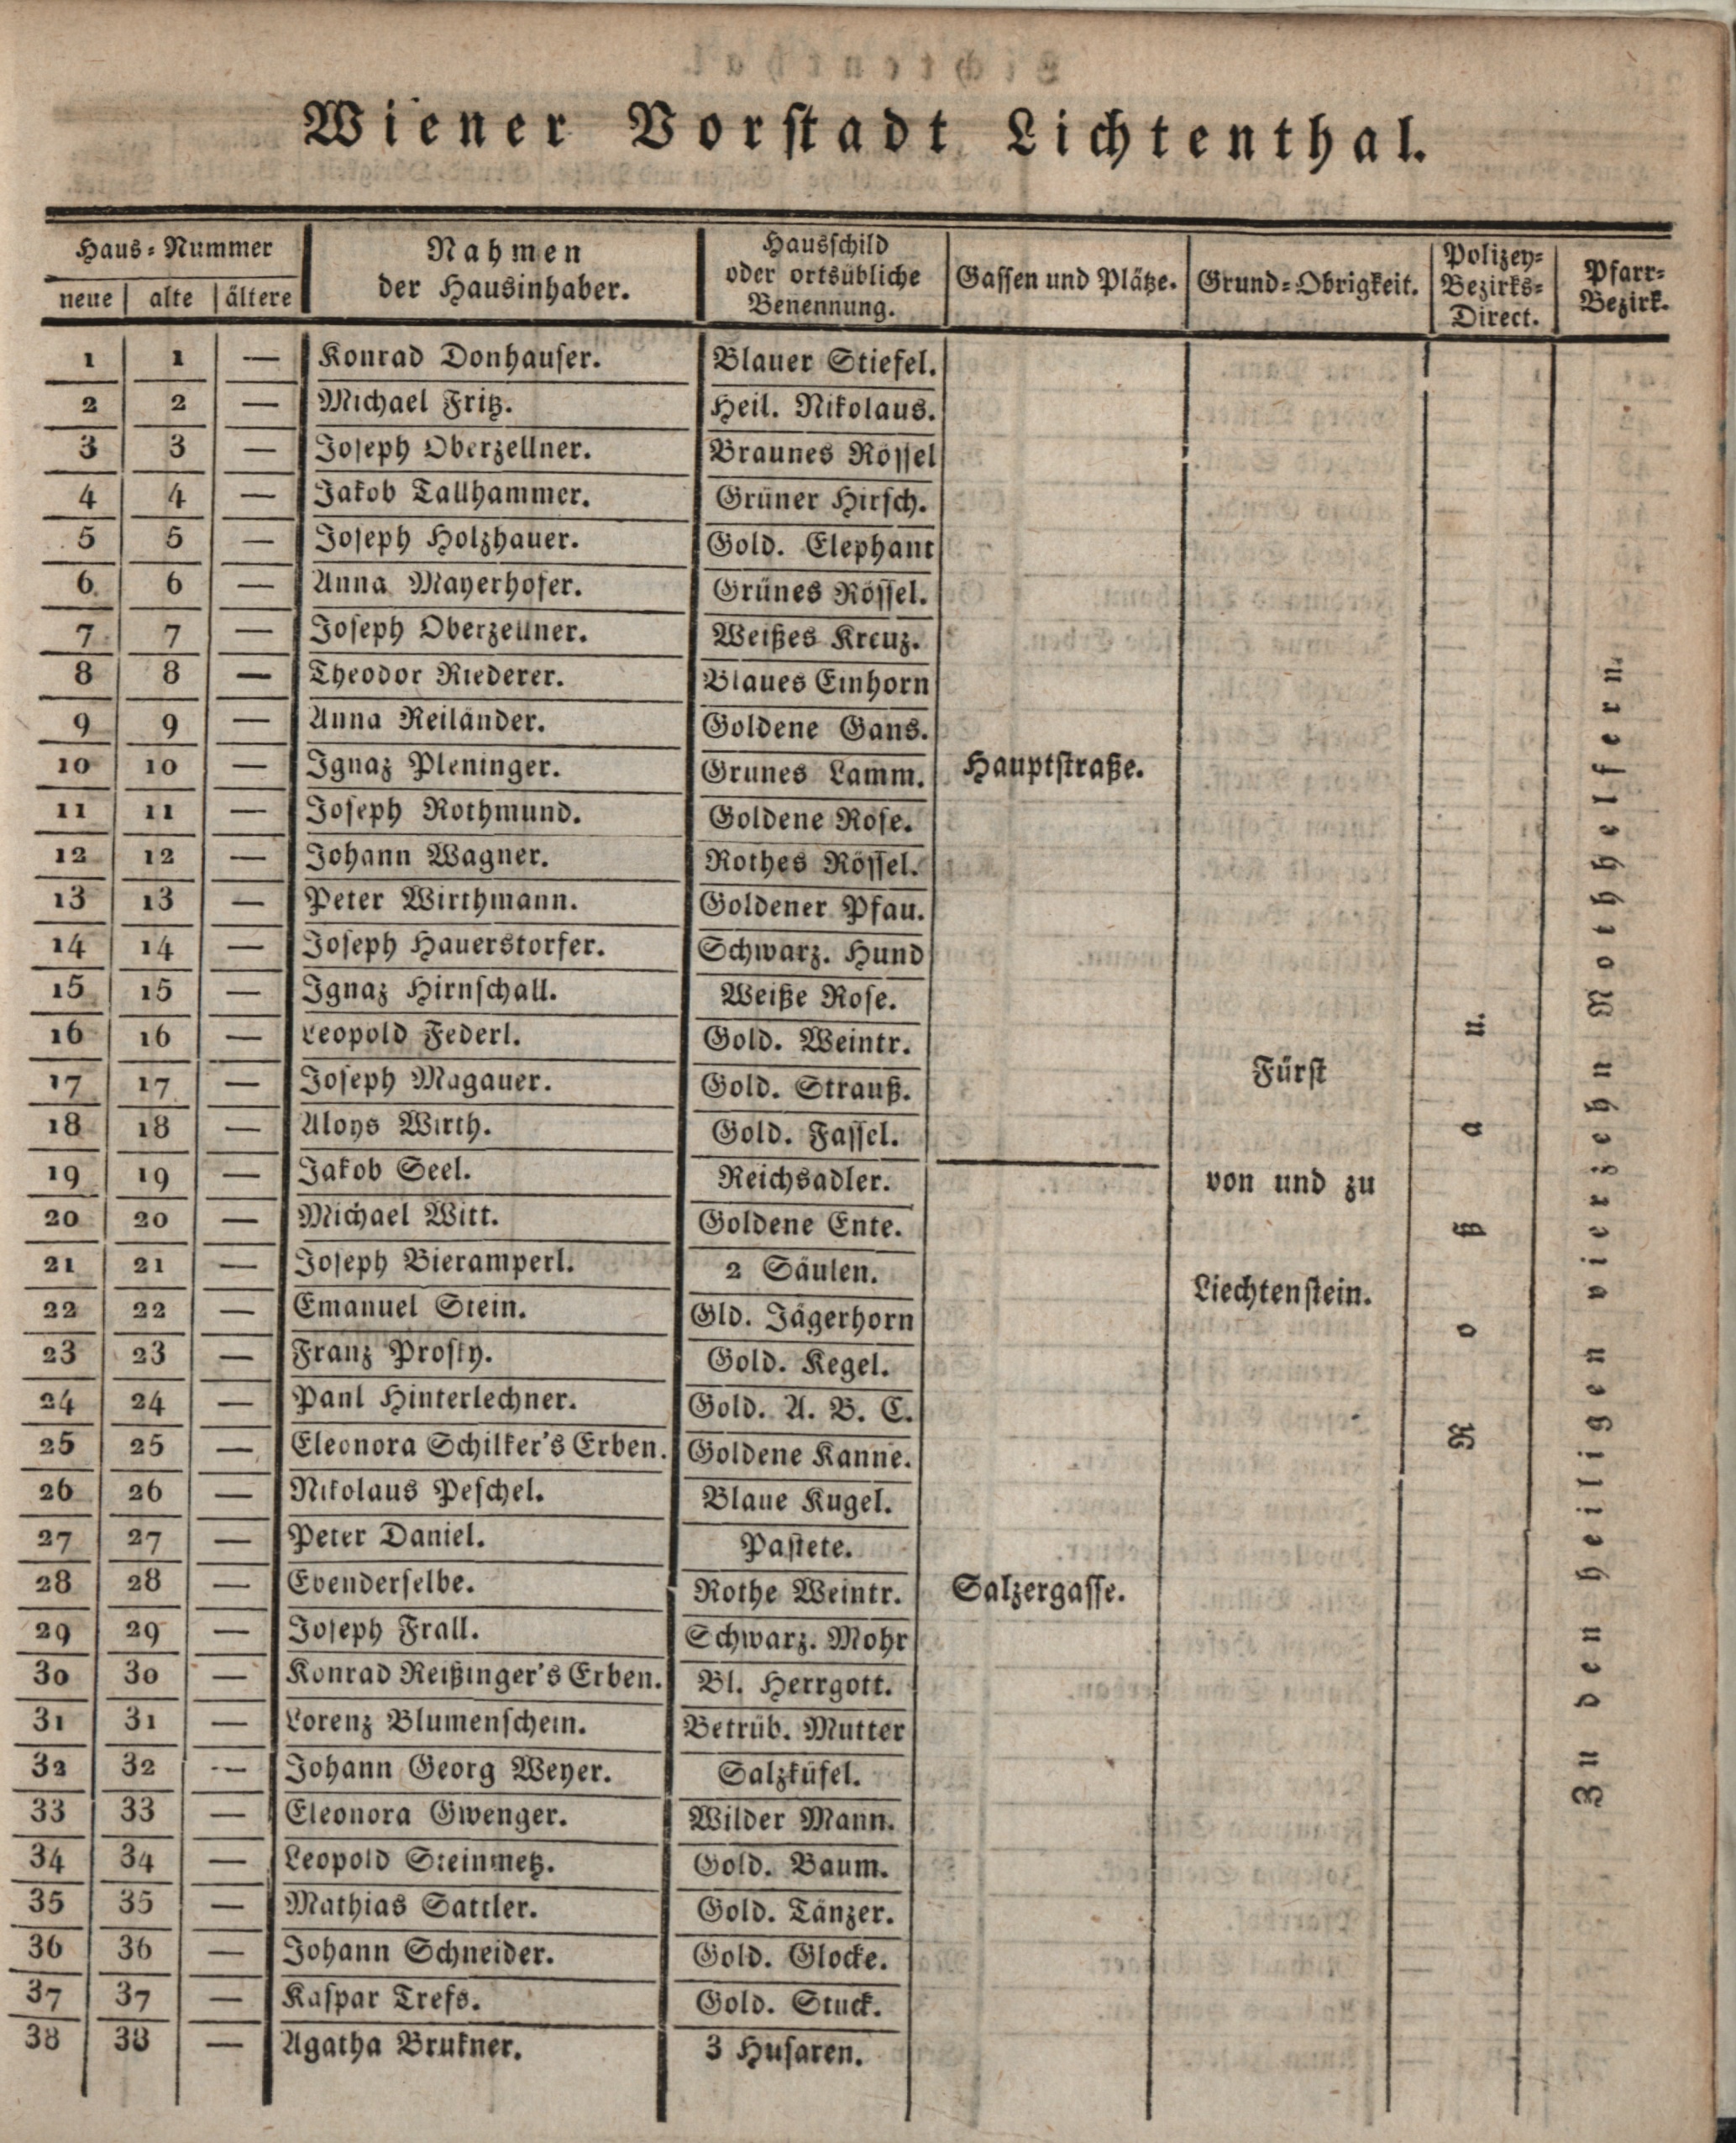 Wiener Vorstadt Lichtenthal.
Haus-Nummer
neue alte ältere
Nahmen
der Hausinhaber.
Hausschild
oder ortsübliche
Benennung.
Gassen und Plätze.
Grund-Obrigkeit.
Polizey-
Bezirks-
Direct.
Pfarr-
Bezirk.
1 1 — Konrad Donhauser. Blauer Stiefel.
2 2 — Michael Fritz. Heil. Nikolaus.
3 3 — Joseph Oberzellner. Braunes Rössel
4 4 — Jakob Tallhammer. Grüner Hirsch.
5 5 — Joseph Holzhauer. Gold. Elephant
6 6 — Anna Mayerhofer. Grünes Rössel.
7 7 — Joseph Oberzellner. Weißes Kreuz.
8 8 — Theodor Riederer. Blaues Einhorn
9 9 — Anna Reiländer. Goldene Gans.
10 10 — Ignaz Pleninger. Grünes Lamm. Hauptstraße.
11 11 — Joseph Rothmund. Goldene Rose.
12 12 — Johann Wagner. Rothes Rössel.
13 13 — Peter Wirthmann. Goldener Pfau.
14 14 — Joseph Hauerstorfer. Schwarz. Hund
15 15 — Ignaz Hirnschall. Weiße Rose.
16 16 — Leopold Federl. Gold. Weintr.
17 17 — Joseph Magauer. Gold. Strauß.
18 18 — Aloys Wirth. Gold. Fassel.
19 19 — Jakob Seel. Reichsadler.
20 20 — Michael Witt. Goldene Ente.
21 21 — Joseph Bieramperl. 2 Säulen.
22 22 — Emanuel Stein. Gld. Jägerhorn
23 23 — Franz Prosky. Gold. Kegel.
24 24 — Paul Hinterlechner. Gold. A. B. C.
25 25 — Eleonora Schilker's Erben. Goldene Kanne.
26 26 — Nikolaus Peschel. Blaue Kugel.
27 27 — Peter Daniel. Pastete.
28 28 — Ebenderselbe. Rothe Weintr. Salzergasse.
29 29 — Joseph Frall. Schwarz. Mohr
30 30 — Konrad Reißinger's Erben. Bl. Herrgott.
31 31 — Lorenz Blumenschein. Betrüb. Mutter
32 32 — Johann Georg Weyer. Salzküfel.
33 33 — Eleonora Gwenger. Wilder Mann.
34 34 — Leopold Steinmetz. Gold. Baum.
35 35 — Mathias Sattler. Gold. Tänzer.
36 36 — Johann Schneider. Gold. Glocke.
37 37 — Kaspar Trefs. Gold. Stuck.
38 38 — Agatha Brukner. 3 Husaren.
Fürst
von und zu
Liechtenstein.
Roßau.
Zu den heiligen vierzehn Nothhelfern.